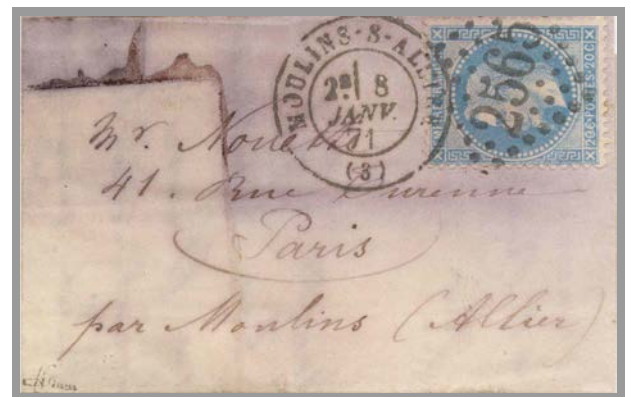 MOULINS-S-ALLIER
2ᴱ 8
JANV.
71
(3)
2565
20 C
POSTES
20 C
Mr.
41. Rue Turenne
Paris
par Moulins (Allier)